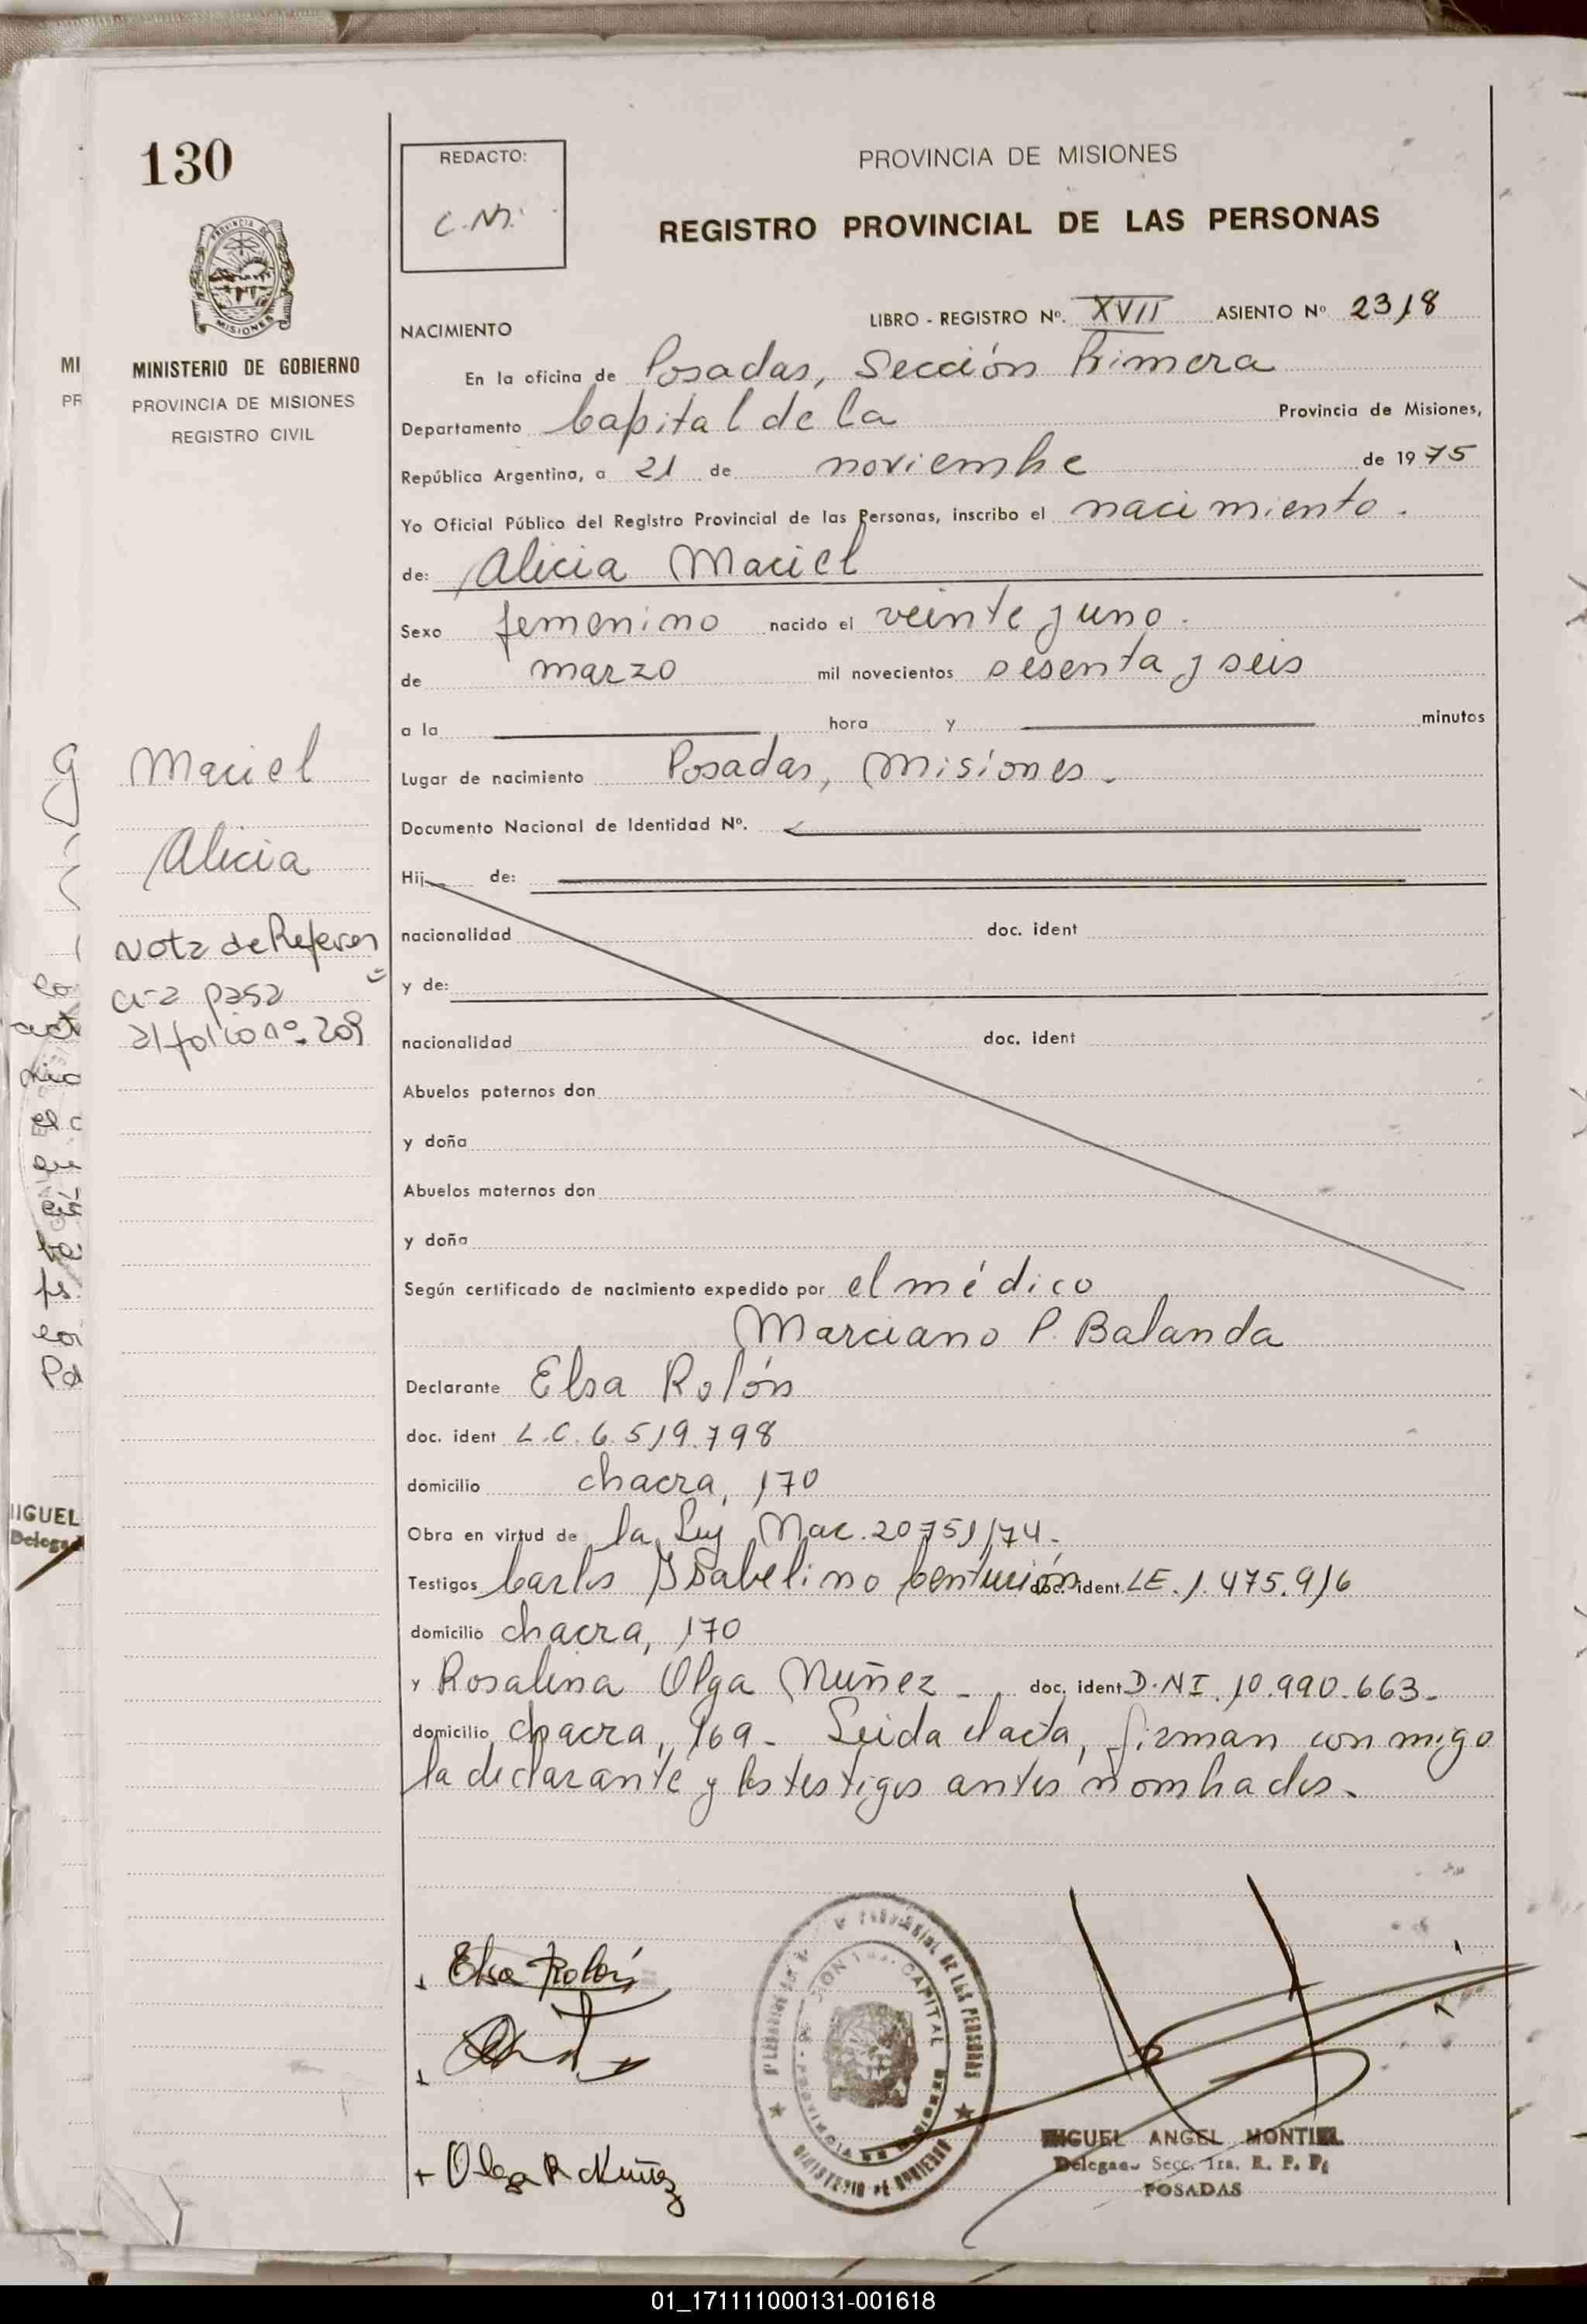 130
MINISTERIO DE GOBIERNO
PROVINCIA DE MISIONES
REGISTRO CIVIL
Maciel
Alicia
Nota de Referen=
cia pasa
al folio nº 209
REDACTO:
C.N.
PROVINCIA DE MISIONES
REGISTRO PROVINCIAL DE LAS PERSONAS
NACIMIENTO
LIBRO - REGISTRO Nº. XVII ASIENTO Nº 2318
En la oficina de Posadas, Sección Primera
Departamento Capital de la Provincia de Misiones,
República Argentina, a 21 de noviembre de 1975
Yo Oficial Público del Registro Provincial de las Personas, inscribo el nacimiento.
de: Alicia Maciel
Sexo femenino nacido el veinte y uno.
de marzo mil novecientos sesenta y seis
a la hora y minutos
Lugar de nacimiento Posadas, Misiones.
Documento Nacional de Identidad Nº.
Hij de:
nacionalidad doc. ident
y de:
nacionalidad doc. ident
Abuelos paternos don
y doña
Abuelos maternos don
y doña
Según certificado de nacimiento expedido por el médico
Marciano P. Balanda
Declarante Elsa Rolón
doc. ident L.C. 6.519.798
domicilio chacra, 170
Obra en virtud de la Ley Nac. 20751/74.
Testigos Carlos Ysabelino Centurión doc. ident. LE. 1.475.916
domicilio chacra, 170
y Rosalina Olga Nuñez - doc. ident D.NI. 10.990.663-
domicilio chacra, 169- Leida el acta, firman conmigo
la declarante y los testigos antes nombrados.
Elsa Rolón
Olga R Nuñez
MIGUEL ANGEL MONTIEL
Delegado Secc. 1ra. R. P. P.
POSADAS
01_171111000131-001618